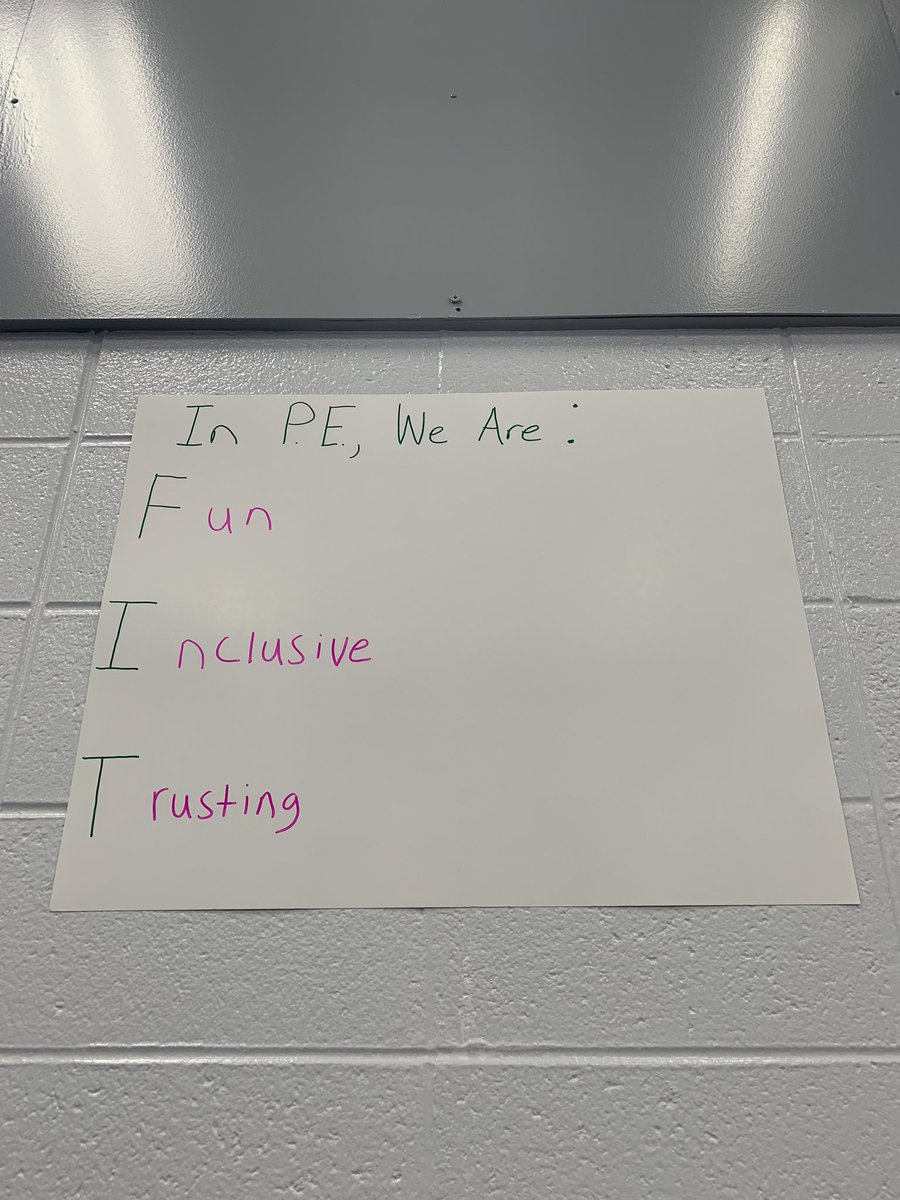 In P.E., We Are:
Fun
Inclusive
Trusting